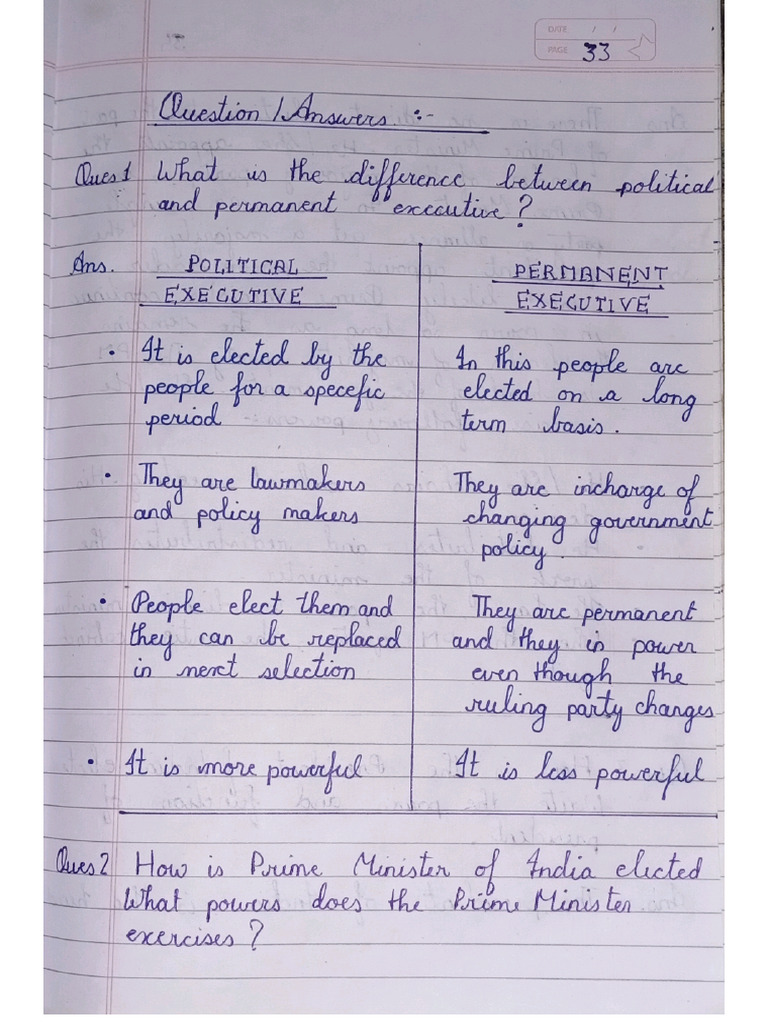 DATE / /
PAGE 33
Question/Answers :-
Ques 1 What is the difference between political
and permanent executive?
Ans. POLITICAL
EXECUTIVE
PERMANENT
EXECUTIVE
• It is elected by the
people for a specefic
period
In this people are
elected on a long
term basis.
• They are lawmakers
and policy makers
They are incharge of
changing government
policy.
• People elect them and
they can be replaced
in next selection
They are permanent
and they in power
even though the
ruling party changes
• It is more powerful
It is less powerful
Ques 2 How is Prime Minister of India elected
What powers does the Prime Minister
exercises?